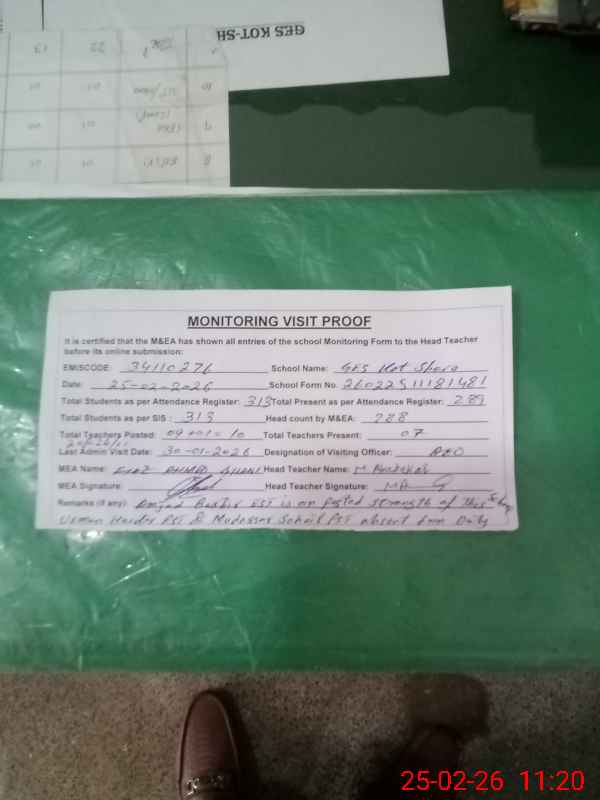 GES KOT-SH
MONITORING VISIT PROOF
It is certified that the M&EA has shown all entries of the school Monitoring Form to the Head Teacher
before its online submission:
EMISCODE: 34110276 School Name: GES Kot Shera
Date: 25-02-2026 School Form No. 260225111181481
Total Students as per Attendance Register: 313 Total Present as per Attendance Register: 289
Total Students as per SIS: 313 Head count by M&EA: 288
Total Teachers Posted: 09+01=10 Total Teachers Present: 07
Last Admin Visit Date: 30-01-2026 Designation of Visiting Officer:
MEA Name: AHMAD Head Teacher Name: M.
MEA Signature: Head Teacher Signature:
Remarks (if any): Amjad Bashir EST is on posted strength of this
Usman Haider PST & Mudassar Sohail PST absent from Duty
25-02-26 11:20